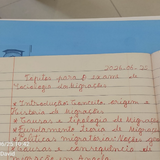 2026.01.22
Topicos para o exame de
Sociologia Migração
* Introdução: Conceito, origem e
História de Migração
* Causas e Tipologia de Migração
* Fundamento Teoria de Migração
* Políticas migratórias: Noções ger
* Causas e consequência de
migração em Angola